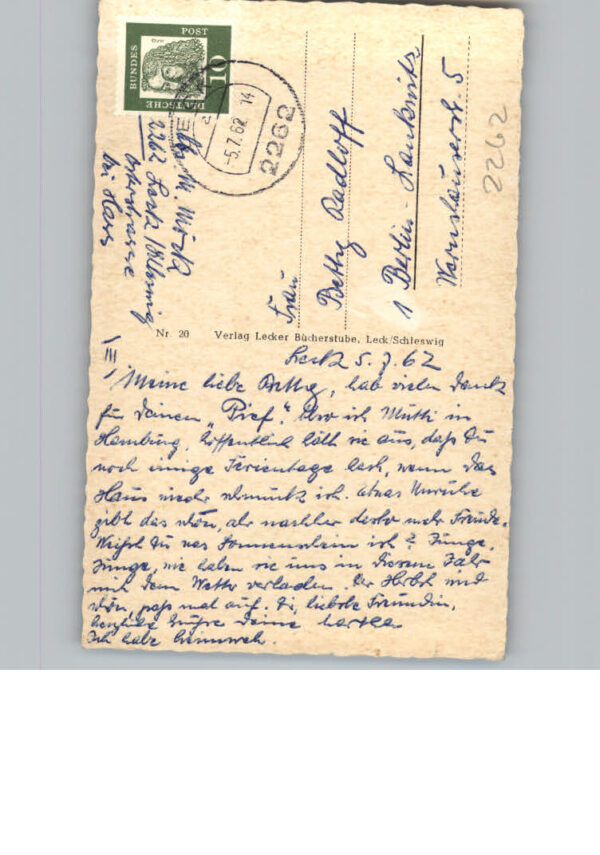 DEUTSCHE
BUNDES
POST
10
-5.7.62 14
2262
2262
Abs. M. Mörk
2262 Leck / Schleswig
Osterstrasse
bei Hass
Frau
Betty Radloff
1 Berlin-Lankwitz
5
Nr. 20 Verlag Lecker Bücherstube, Leck/Schleswig
Leck 5.7.62
Meine liebe Betty, hab vielen Dank
für Deinen „Brief“. Also ich Mutti in
Hamburg, hoffentlich hält sie aus, daß Du
noch einige Ferientage hast, wenn das
Haus wieder schmuck ist. etwas Unruhe
gibt das schon, aber nachher desto mehr Freude.
Weißt Du was Sonnenschein ist? Junge,
Junge, was haben sie uns in diesem Jahr
mit dem Wetter verladen. Der Herbst wird
schön, paß mal auf. Dir, liebste Freundin,
herzliche Grüße Deine
Ich habe Heimweh.